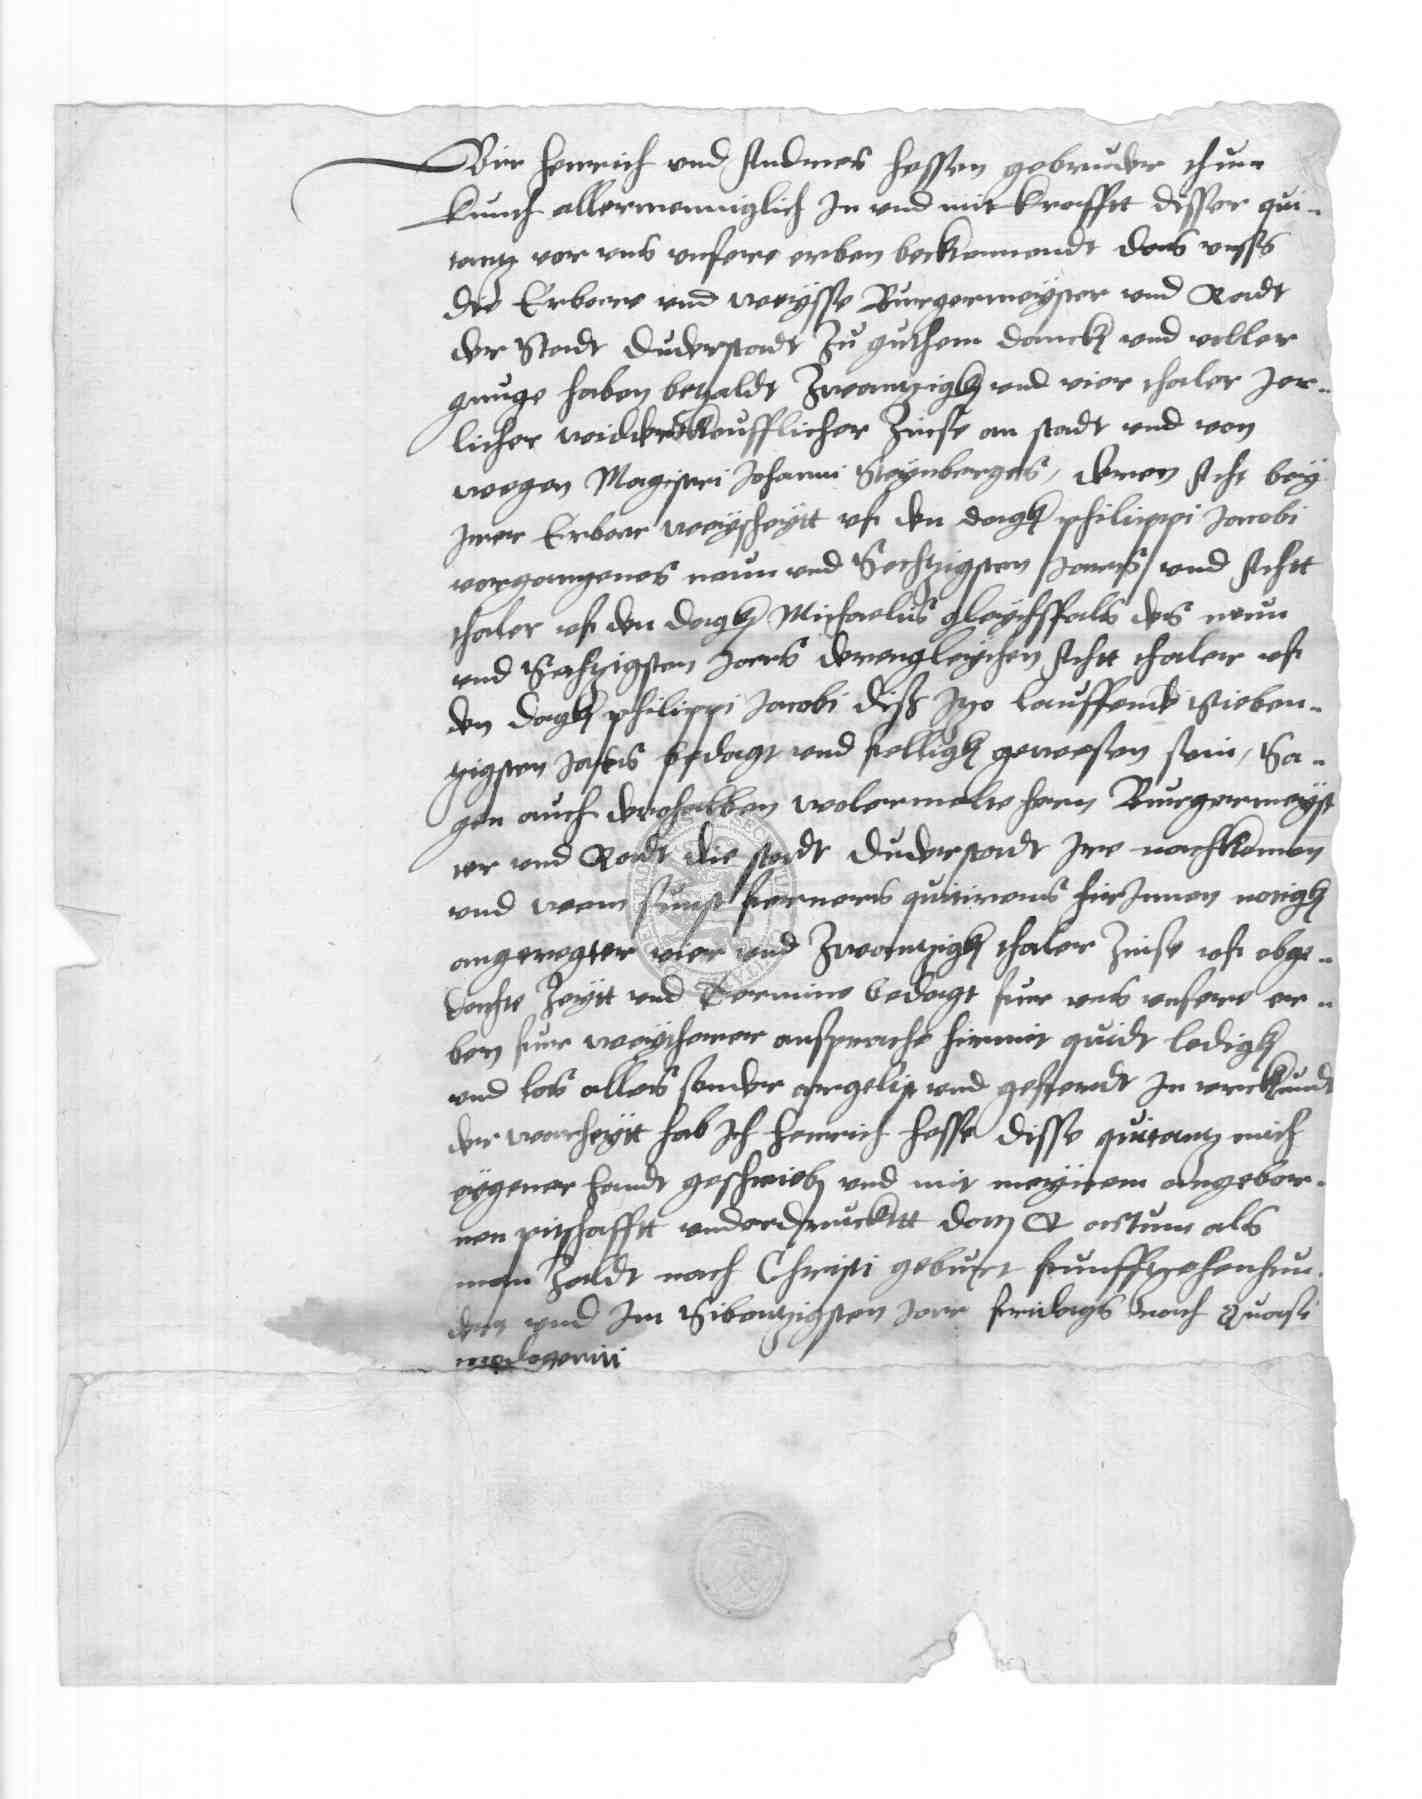 Wir Henrich und Andreas Hessen gebruder thun
kunth allermenniglich In und mit krafftt disser qui-
tantz vor uns unsere erben beckennendt das unsß
die Erbare und weysse Burgermeyster und Radt
der Stadt Duderstadt zu guthem danck und voller
gnuge haben bezaldt Zwantzigk und vier thaler Jer-
licher widderkeufflicher Zinse an stadt und von
wegen Magistri Johanni Steynberges, deren Acht bey
Irer Erbar weyscheytt uf den dagk philippi Jacobi
vergangenes neun und Sechtzigsten Jaers und Achtt
thaler uf den dagk Michaelis gleychffals des neun
und Sechtzigsten Jaers derengleychen Achtt thaler uf
den dagk philippi Jacobi diß Itzo lauffende Sieben-
tzigsten Jaers bedagt und felligk gewesen sein, Sa-
gen auch derhalben wolermelte hern Burgermeyst
er und Radt die stadt Duderstadt Ire nachkomen
und wem sunst ferners quitirens hirInnen notigk
angeregter vier und Zwantzigk thaler Zinse uf obge-
dachte Zeytt und Termine bedagt fur uns unsere er-
ben fur weytherer ansprache hirmit quidt ledigk
und los alles sonder argelist und geferdt In urckhundt
der warheytt hab Ich Henrich Hesse disse quitantz mitt
eygener handt geschrieben und mit meynem angebor-
nen pitschafftt underdrucktt Datum et actum als
man Zaldt nach Christi geburt funfftzehenhun-
dert und Im Sibentzigsten Jare fridags nach Quasi
modogeniti